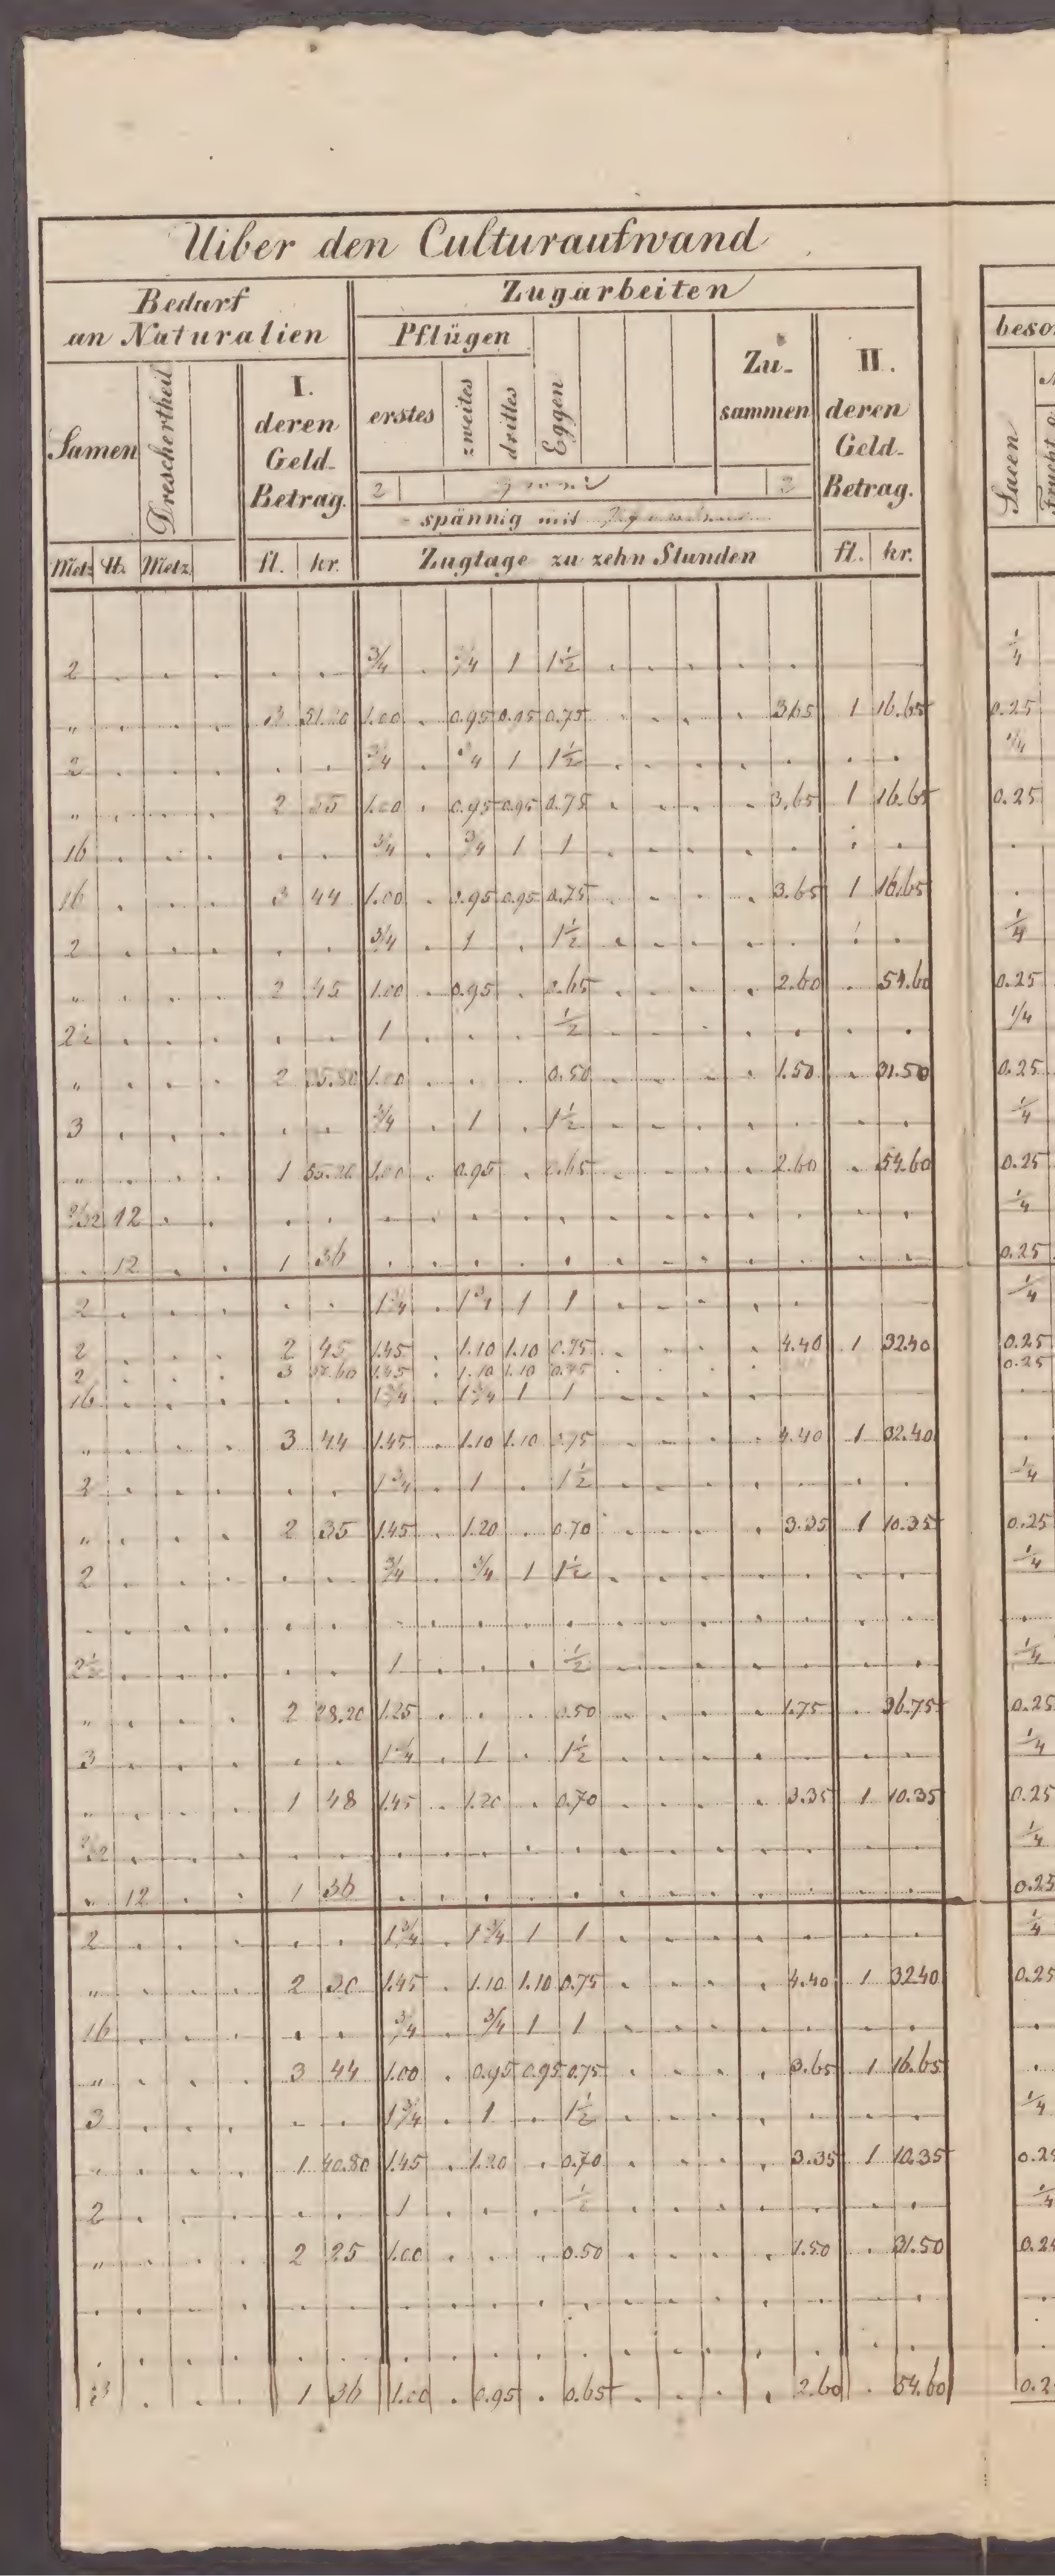 Uiber den Culturaufwand
Bedarf an Naturalien
Zugarbeiten
Pflügen
Samen
Drescherteil
I. deren Geld-Betrag.
erstes
zweites
drittes
Eggen
Zu-sammen
II. deren Geld-Betrag.
beso
Sacen
2 2
spännig mit
Metz ℔. Metz fl. kr. Zugtage zu zehn Stunden fl. kr.
2 3/4 3/4 1 1½ ¼
„ 3 51.20 1.00 0.95 0.95 0.75 3.65 1 16.65 0.25
2 3/4 3/4 1 1½ ¼
„ 2 1.00 0.95 0.95 0.75 3.65 1 16.65 0.25
16 3/4 3/4 1 1
16 3 44 1.00 0.95 0.95 0.75 3.65 1 16.65
2 3/4 1 1½ ¼
„ 2 45 1.00 0.95 0.65 2.60 54.60 0.25
2½ 1 ½ 1/4
„ 2 1.00 0.50 1.50 31.50 0.25
3 3/4 1 1½ ¼
„ 1 55.20 1.00 0.95 0.65 2.60 54.60 0.25
12 ¼
12 1 36 0.25
2 1¾ 1¾ 1 1 ¼
2 2 45 1.45 1.10 1.10 0.75 4.40 1 32.40 0.25
2 3 1.45 1.10 1.10 0.75 0.25
16 1¾ 1¾ 1 1
„ 3 44 1.45 1.10 1.10 0.75 4.40 1 32.40
2 1¾ 1 1½ ¼
„ 2 35 1.45 1.20 0.70 3.35 1 10.35 0.25
2 3/4 3/4 1 1½ ¼
2½ 1 ½ ¼
„ 2 28.20 1.25 0.50 1.75 36.75 0.25
3 1¾ 1 1½ ¼
„ 1 48 1.45 1.20 0.70 3.35 1 10.35 0.25
¼
„ 12 1 36 0.25
2 1¾ 1¾ 1 1 ¼
„ 2 30 1.45 1.10 1.10 0.75 4.40 1 32.40 0.25
16 3/4 3/4 1 1
„ 3 44 1.00 0.95 0.95 0.75 3.65 1 16.65
3 1¾ 1 1½ ¼
„ 1 40.80 1.45 1.20 0.70 3.35 1 10.35 0.25
2 1 ½ ¼
„ 2 25 1.00 0.50 1.50 31.50 0.25
1 36 1.00 0.95 0.65 2.60 54.60 0.2